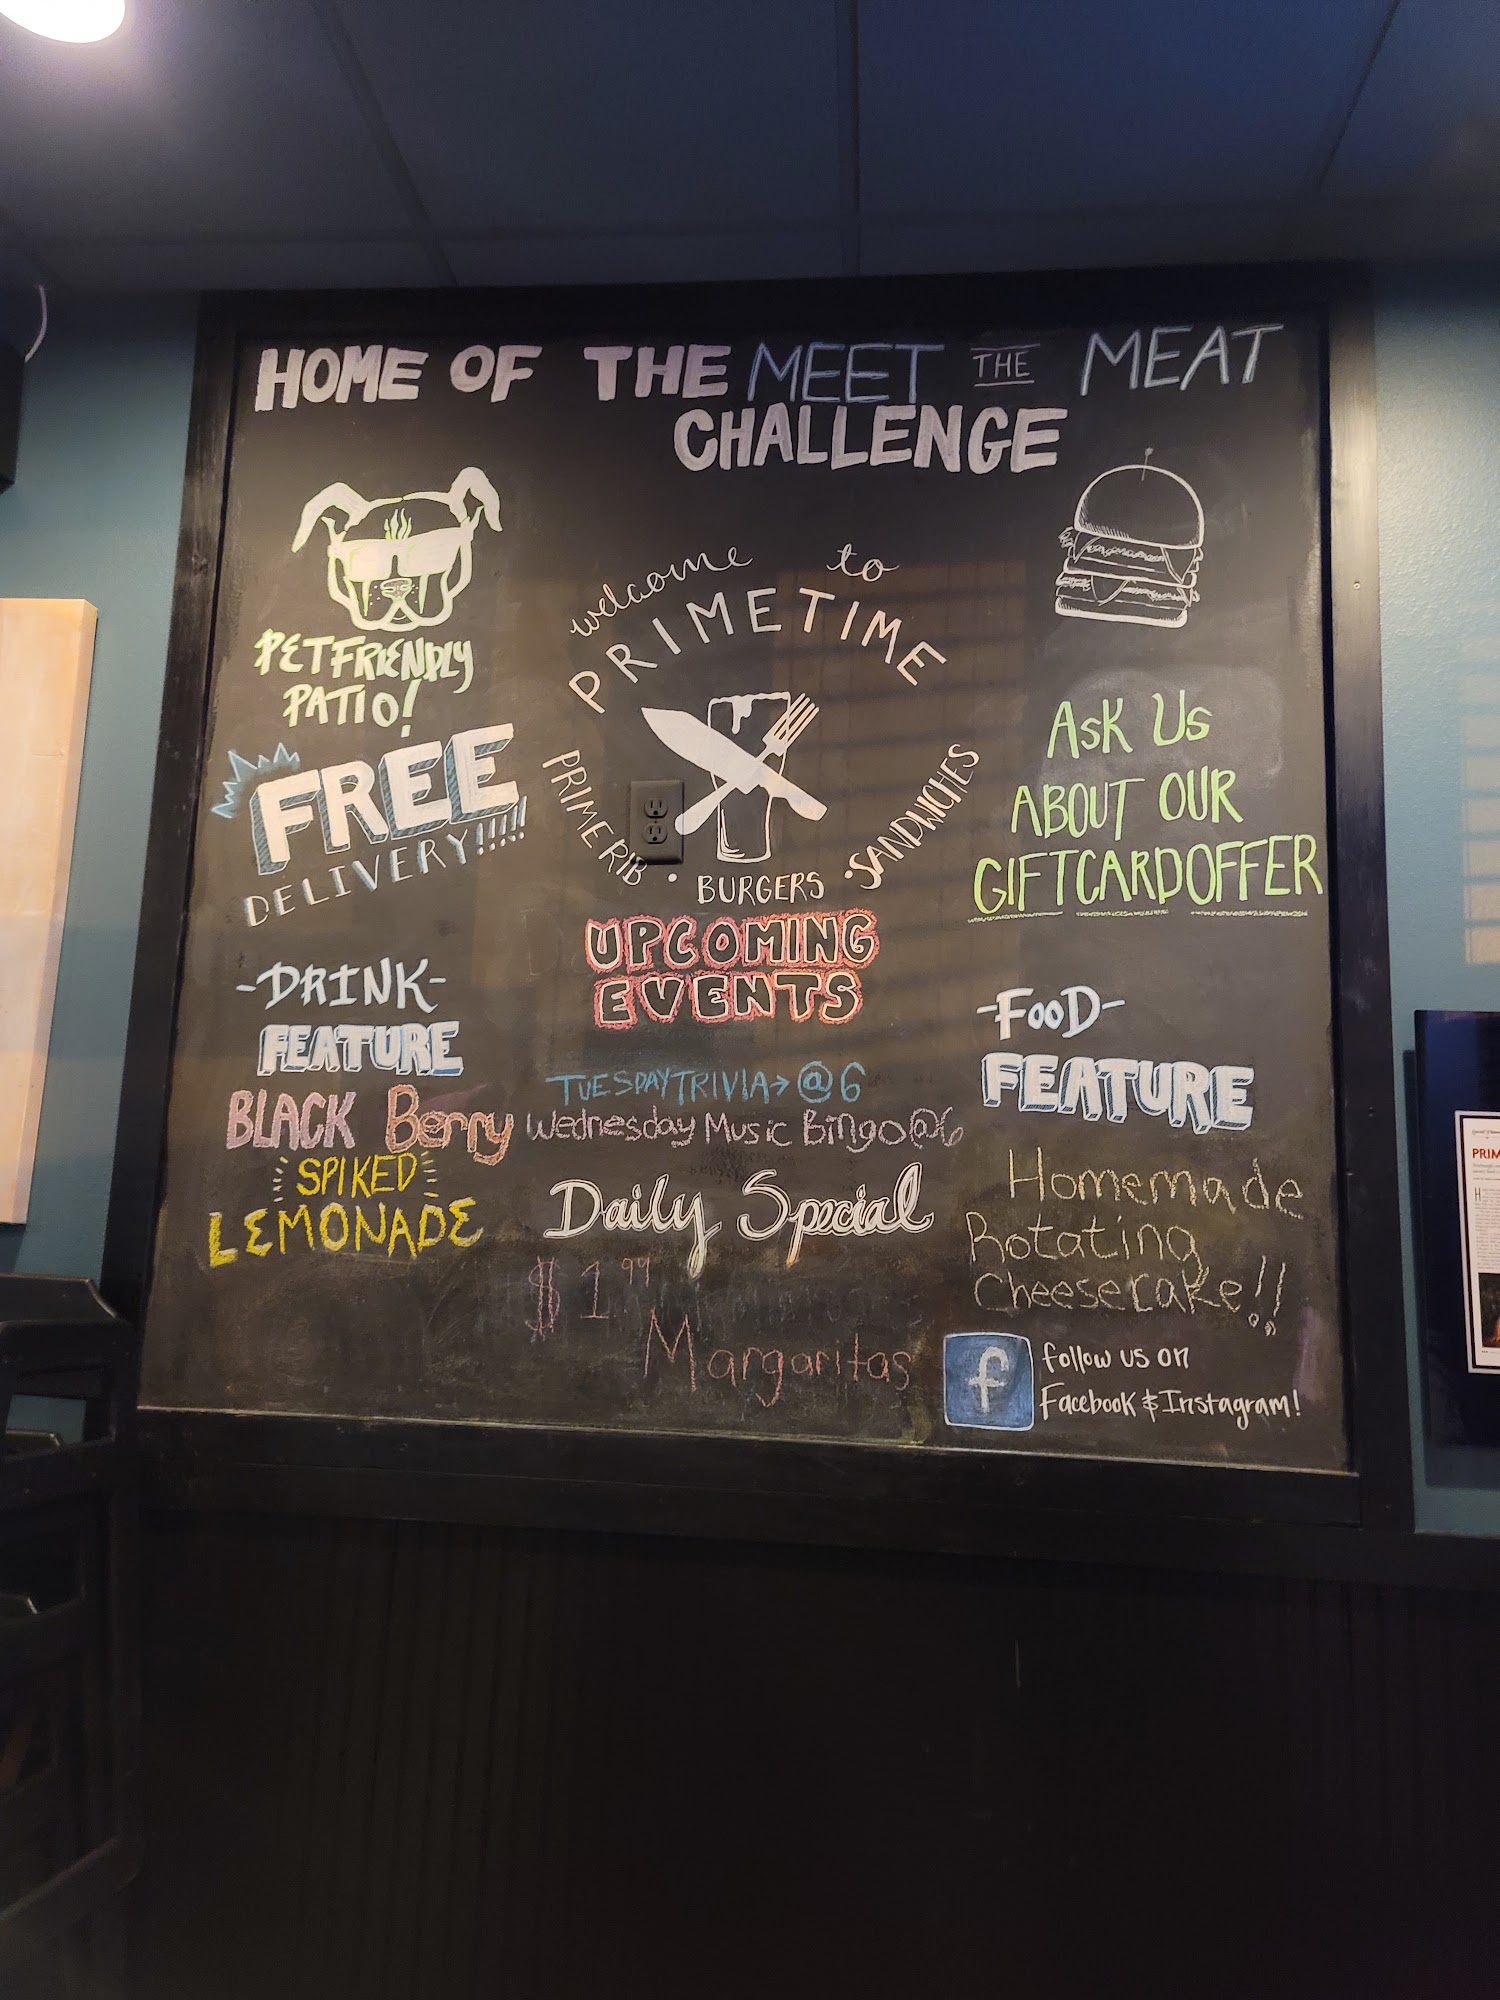 HOME OF THE MEET THE MEAT
CHALLENGE
welcome to
PRIMETIME
PRIME RIB • BURGERS • SANDWICHES
PET FRIENDLY
PATIO!
FREE
DELIVERY!!!!!
ASK US
ABOUT OUR
GIFTCARD OFFER
UPCOMING
EVENTS
TUESDAY TRIVIA → @ 6
Wednesday Music Bingo @ 6
-DRINK-
FEATURE
BLACK Berry
SPIKED
LEMONADE
Daily Special
$1.99
Margaritas
-FOOD-
FEATURE
Homemade
Rotating
Cheesecake!!
f
follow us on
Facebook & Instagram!
PRIM